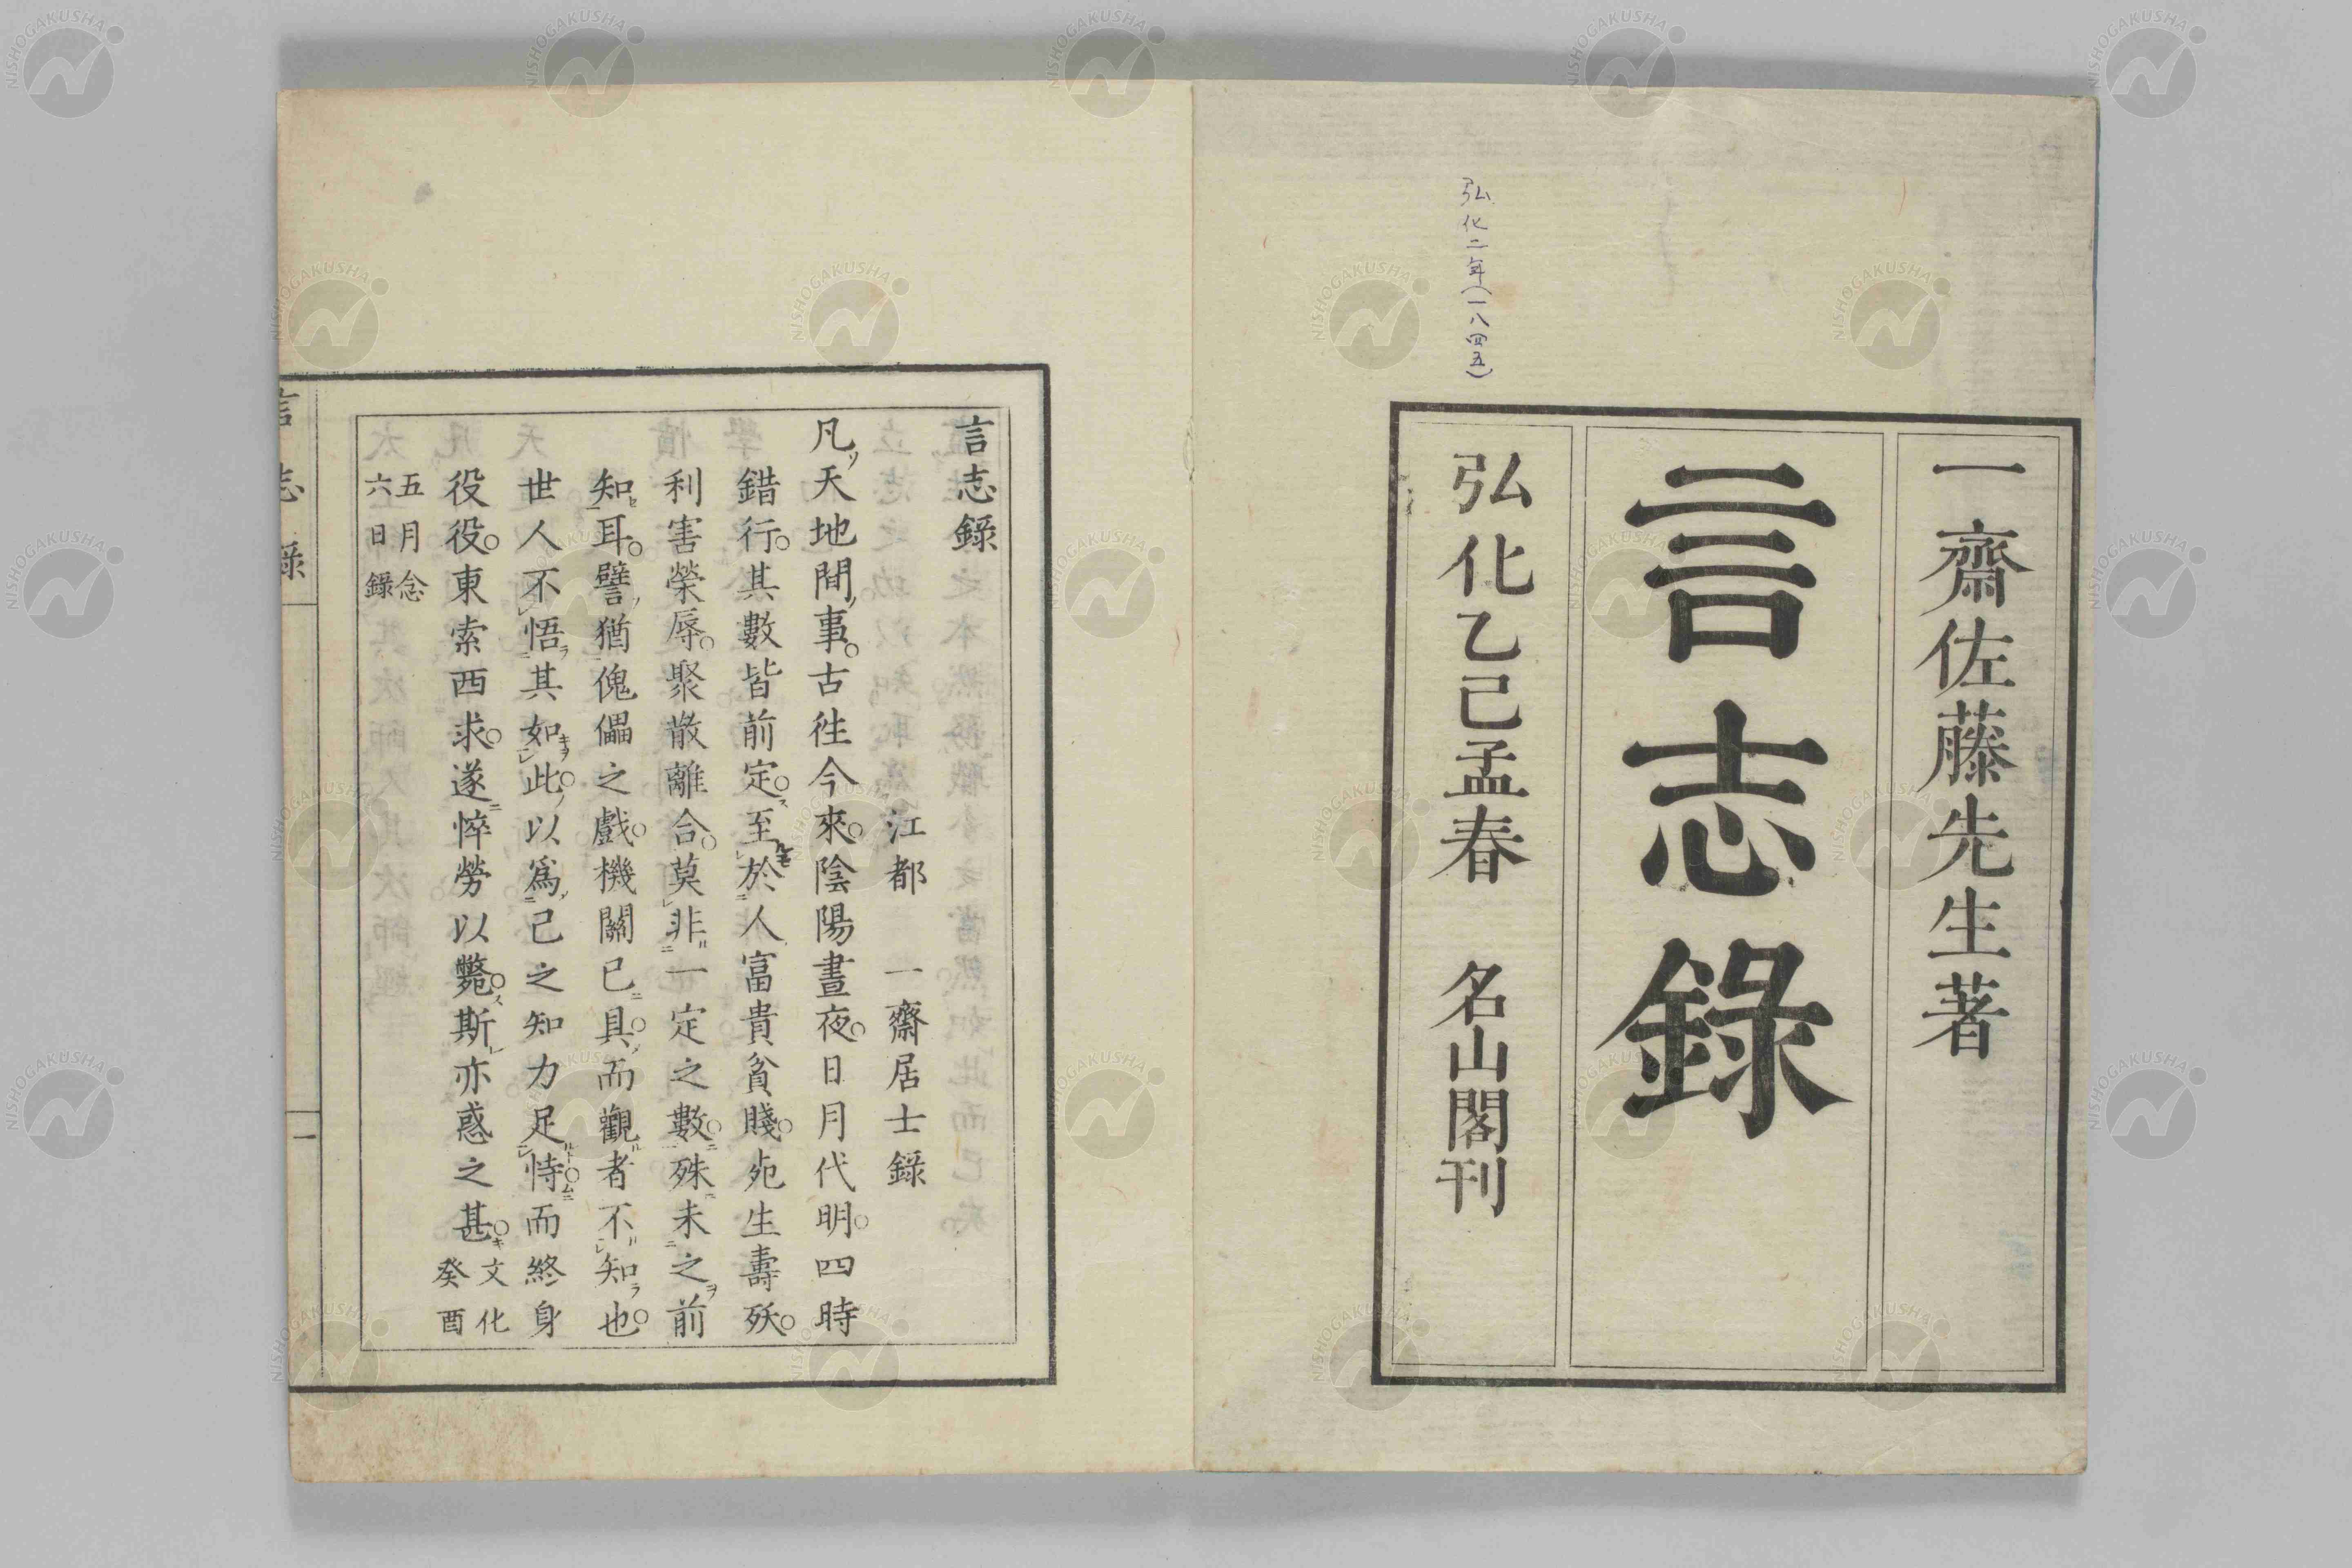 弘化二年(一八四五)
一齋佐藤先生著
言志錄
弘化乙巳孟春　名山閣刊
言志錄
江都　一齋居士錄
凡天地間事。古往今來。陰陽晝夜。日月代明。四時
錯行。其數皆前定。至於人富貴貧賤。死生壽殀。
利害榮辱。聚散離合。莫非一定之數。殊未之前
知耳。譬猶傀儡之戲。機關已具。而觀者不知也。
世人不悟其如此。以爲己之知力足恃。而終身
役役。東索西求。遂悴勞以斃。斯亦惑之甚。文化癸酉
五月念六日錄
言志錄
一
NISHOGAKUSHA